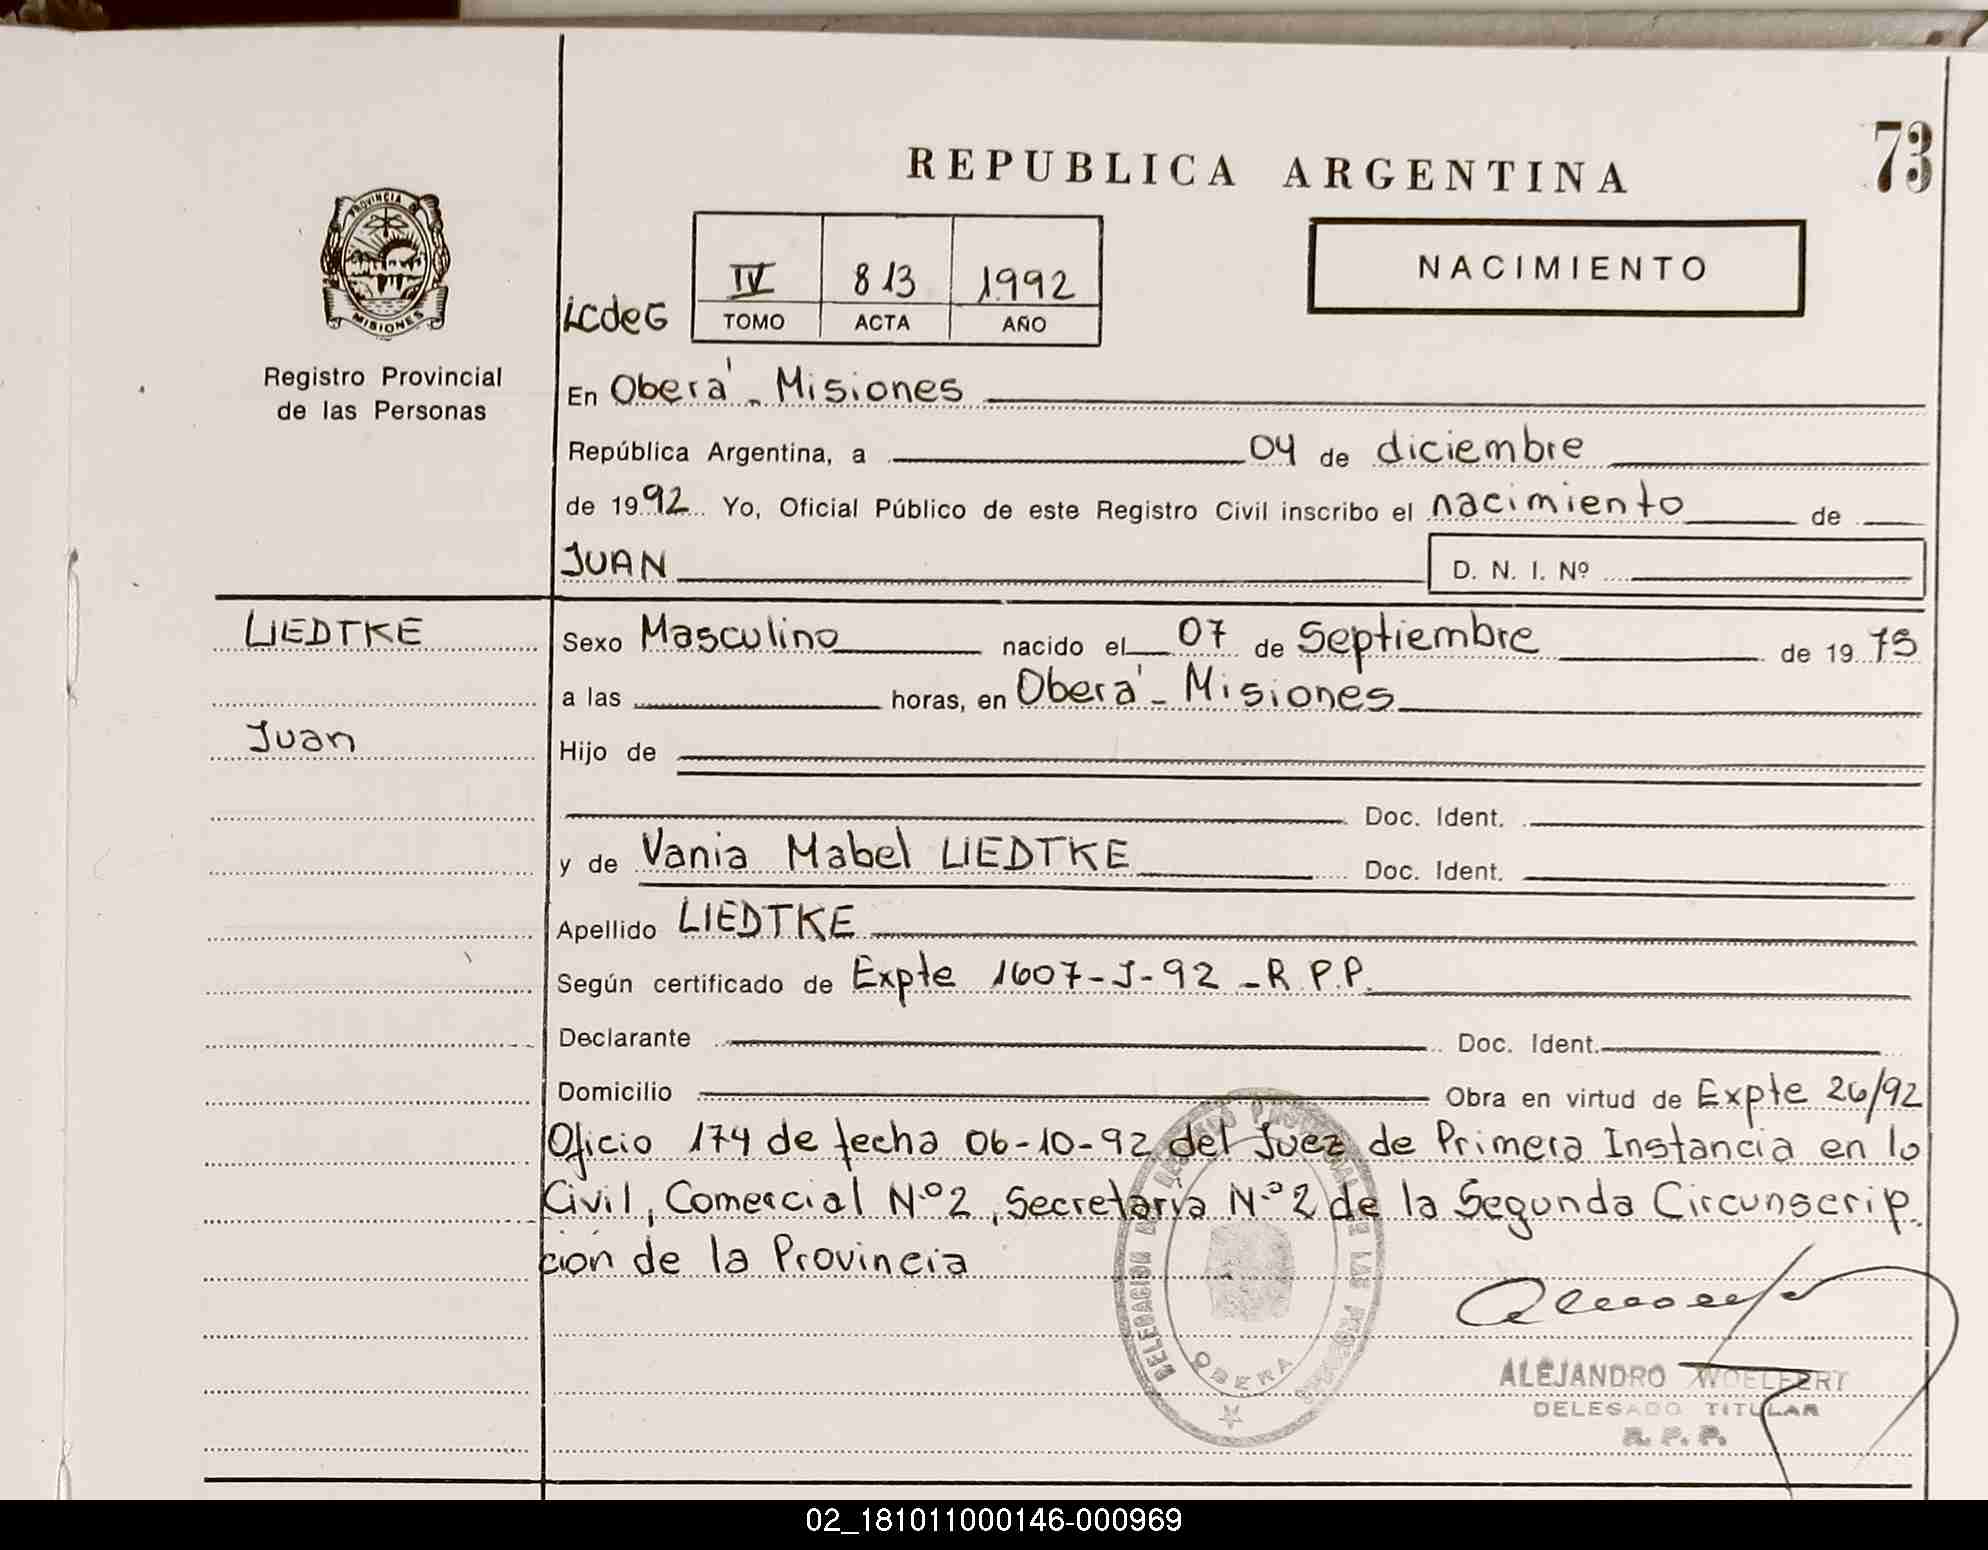 73
REPUBLICA ARGENTINA
PROVINCIA D
MISIONES
Registro Provincial
de las Personas
NACIMIENTO
IV 813 1992
LCdeG TOMO ACTA AÑO
En Oberá - Misiones
República Argentina, a 04 de diciembre
de 1992 Yo, Oficial Público de este Registro Civil inscribo el nacimiento de
JUAN D. N. I. Nº
LIEDTKE
Juan
Sexo Masculino nacido el 07 de Septiembre de 1975
a las horas, en Oberá - Misiones
Hijo de
Doc. Ident.
y de Vania Mabel LIEDTKE Doc. Ident.
Apellido LIEDTKE
Según certificado de Expte 1607-J-92 - R.P.P.
Declarante Doc. Ident.
Domicilio Obra en virtud de Expte 26/92
Oficio 174 de fecha 06-10-92 del Juez de Primera Instancia en lo
Civil, Comercial N.º2, Secretaría N.º2 de la Segunda Circunscrip.
ción de la Provincia
DELEGACION DE LAS
OBERA
ALEJANDRO WOELFERT
DELEGADO TITULAR
R. P. P.
02_181011000146-000969